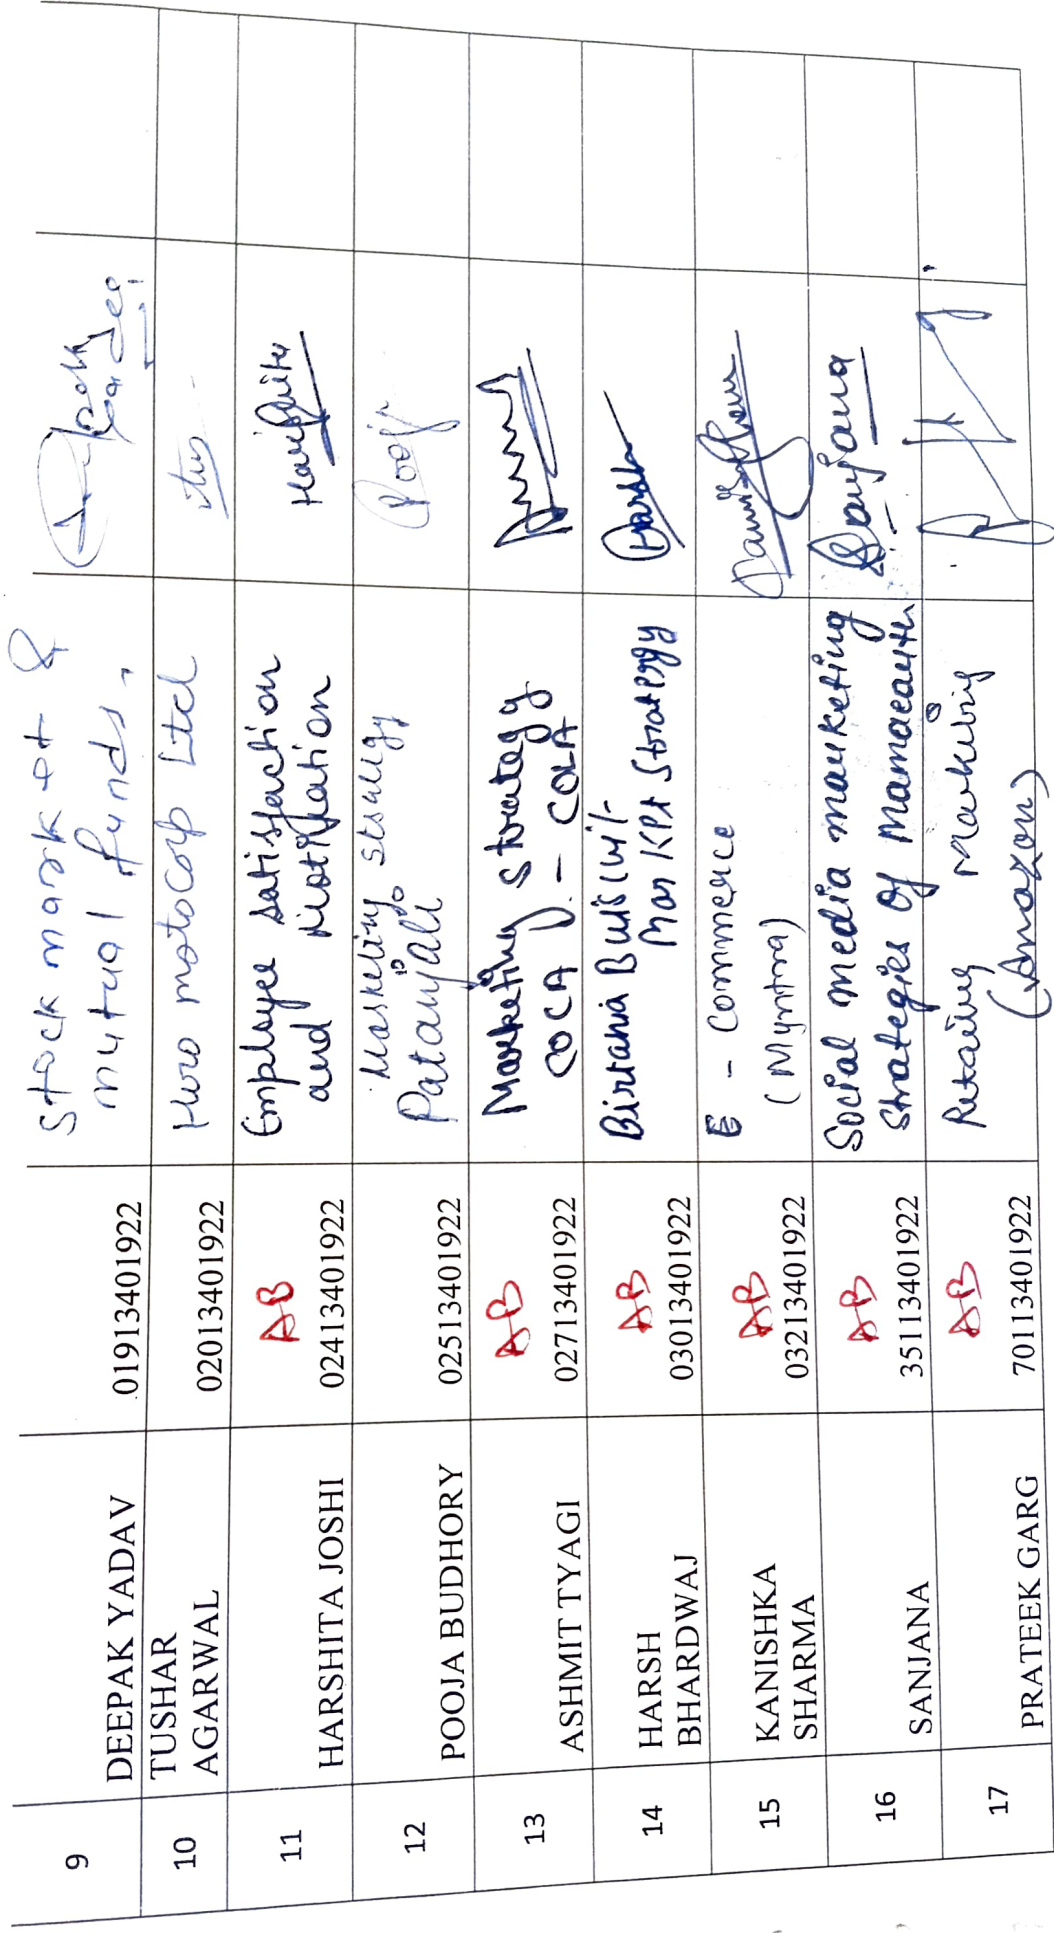 9
DEEPAK YADAV
01913401922
Stock market &
mutual funds.
Deepak
10
TUSHAR
AGARWAL
02013401922
Hero motocorp Ltd
11
HARSHITA JOSHI
AB
02413401922
Employee satisfaction
and Motivation
12
POOJA BUDHORY
02513401922
Marketing
Patanjali
Pooja
13
ASHMIT TYAGI
AB
02713401922
Marketing Strategy
COCA - COLA
14
HARSH
BHARDWAJ
AB
03013401922
Birtania
Strategy
Harsh
15
KANISHKA
SHARMA
AB
03213401922
E - Commerce
(Myntra)
16
SANJANA
AB
35113401922
Social media marketing
strategies of Mamaearth
Sanjana
17
PRATEEK GARG
AB
70113401922
Retailing
(Amazon)